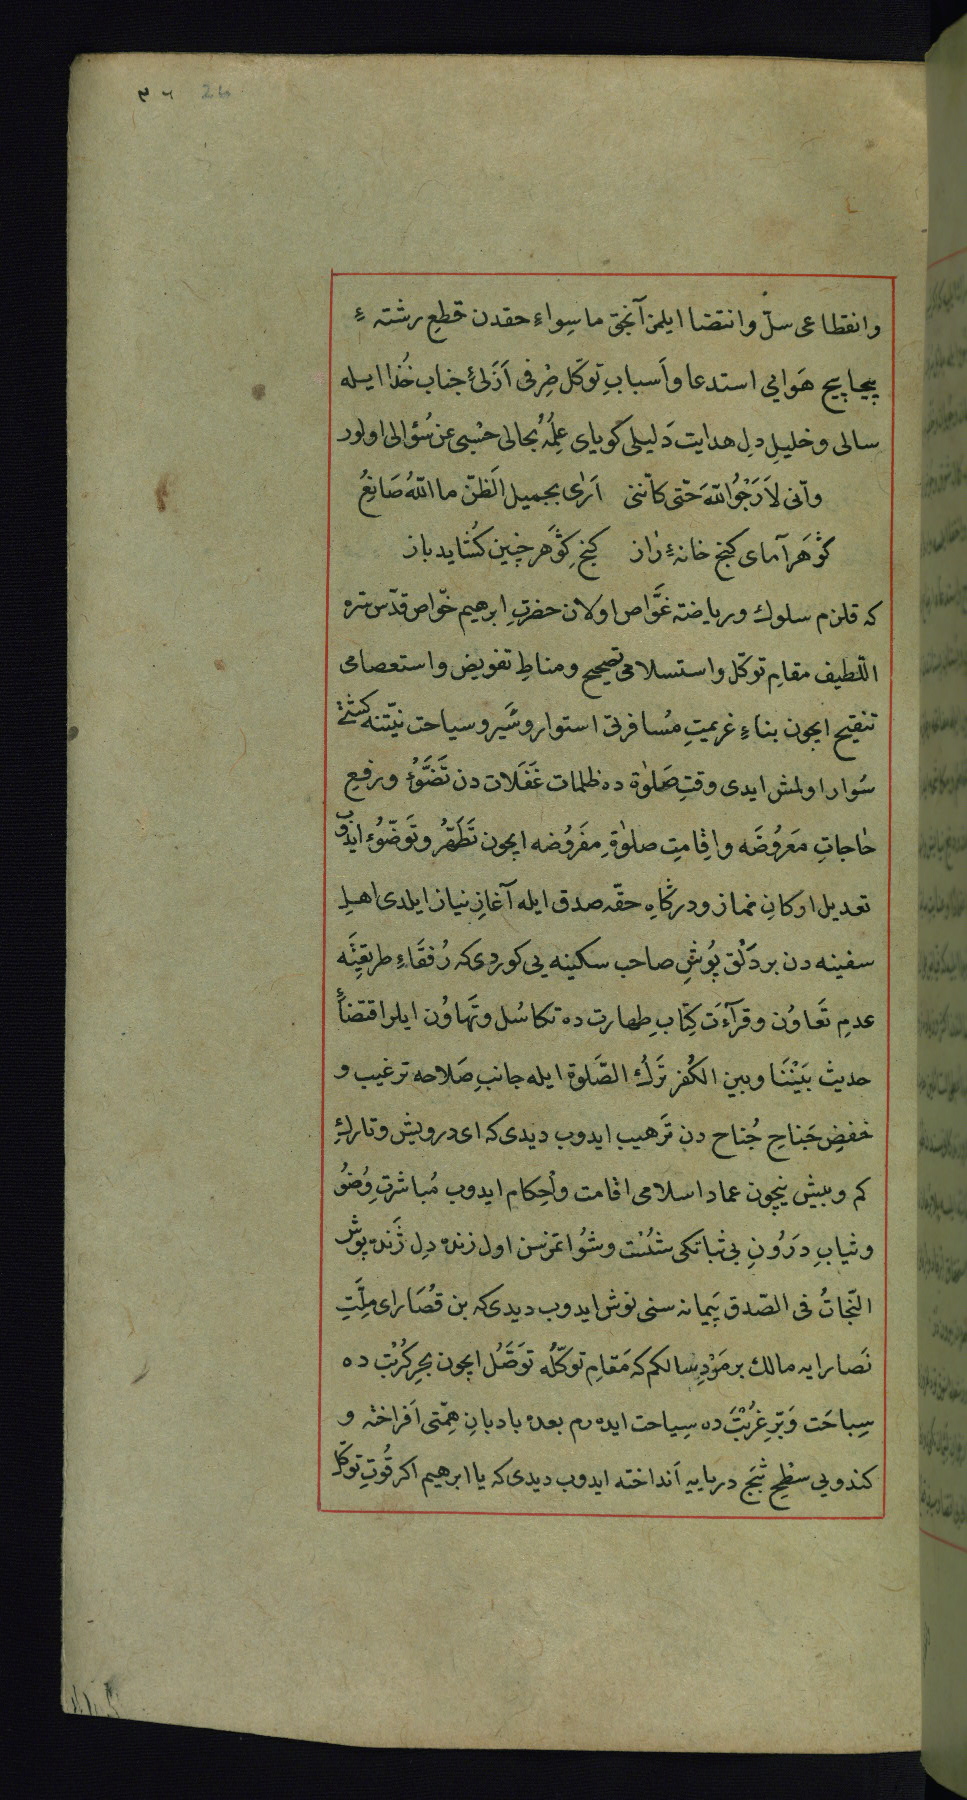 ٢٦ 26
وانقطاعی سلّ وانتضا ایلمز آنجق ماسواء حقدن قطع رشتهٔ
پیچاپیچ هَوایی استدعا واَسبابِ توکّل صِرفی اَزَلئ جناب خُدا ایله
سالی وخلیلِ دلِ هدایت دَلیلی کویای عِلمُهُ بحالی حَسْبی عن سُؤالی اولور
وانّی لاَرْجُواللّٰهَ حَتّی کانّنی اَرٰی بجمیل الظنّ ما اللّٰهُ صَانِعُ
کَوهَرآمای کنج خانهٔ رٰاز کنجِ کَوهر چنین کُشاید باز
که قلزم سلوك وریاضته غَوّاص اولان حضرتِ ابرهیم خوّاص قدّس سرّه
اللّطیف مقامِ توکّل واستسلامی تصحیح ومناطِ تفویض واستعصامی
تنقیح ایچون بناءِ عزیمتِ مُسافرتی استوار وسَیر وسیاحت نیّتنه کشتئ
سَوار اولمش ایدی وقتِ صَلوٰة ده ظلمات غَفَلات دن تَضَوُّء ورفعِ
حٰاجاتِ مَعرُوضَه واِقامتِ صلوٰةِ مفَروُضه ایچون تَطَهّر وتَوَضّوُء ایدوب
تعدیل ارکانِ نماز ودرکَاهِ حقّه صدق ایله آغازِ نیاز ایلدی اهلِ
سفینه دن بر دَلق پُوشِ صاحب سکینه یی کوردی که رُفقَاءِ طریقِنَه
عدمِ تَعاوُن وقرآءَت کِتابِ طهارت ده تکاسُل وتَهاوُن ایلر اقتضأ
حدیث بَیْنَنَا وبین الکُفرِ تَرْكُ الصَّلوة ایله جانبِ صَلاحه ترغیب و
خفضِ جَناحِ جُناح دن تَرهیب ایدوب دیدی که ای درویش وتاركِ
کم وبیش نیچون عماد اسلامی اقامت واِحکام ایدوب مُباشرتِ وُضُو
وثیابِ دَرُونِ بی ثباتکی شُسْت وشُو اتمزسن اول زنده دِل ژَنده پوش
النّجاتُ فی الصّدق پَیمانه سنی نوش ایدوب دیدی که بن قُصَارای مِلَّتِ
نَصارایه مالك بر مَرْدِ سالکم که مَقامِ توکّلُه تَوَصُّل ایچون بحرِ کُرْبت ده
سِباحَت وَبَرّ غُرْبَتَ ده سِیاحت ایده رم بعده بادبانِ هِمّتی اَفراخته و
کندویی سطحِ ثَبَج دریایه اَنداخته ایدوب دیدی که یا ابرهیم اکر قُوتِ توکّل